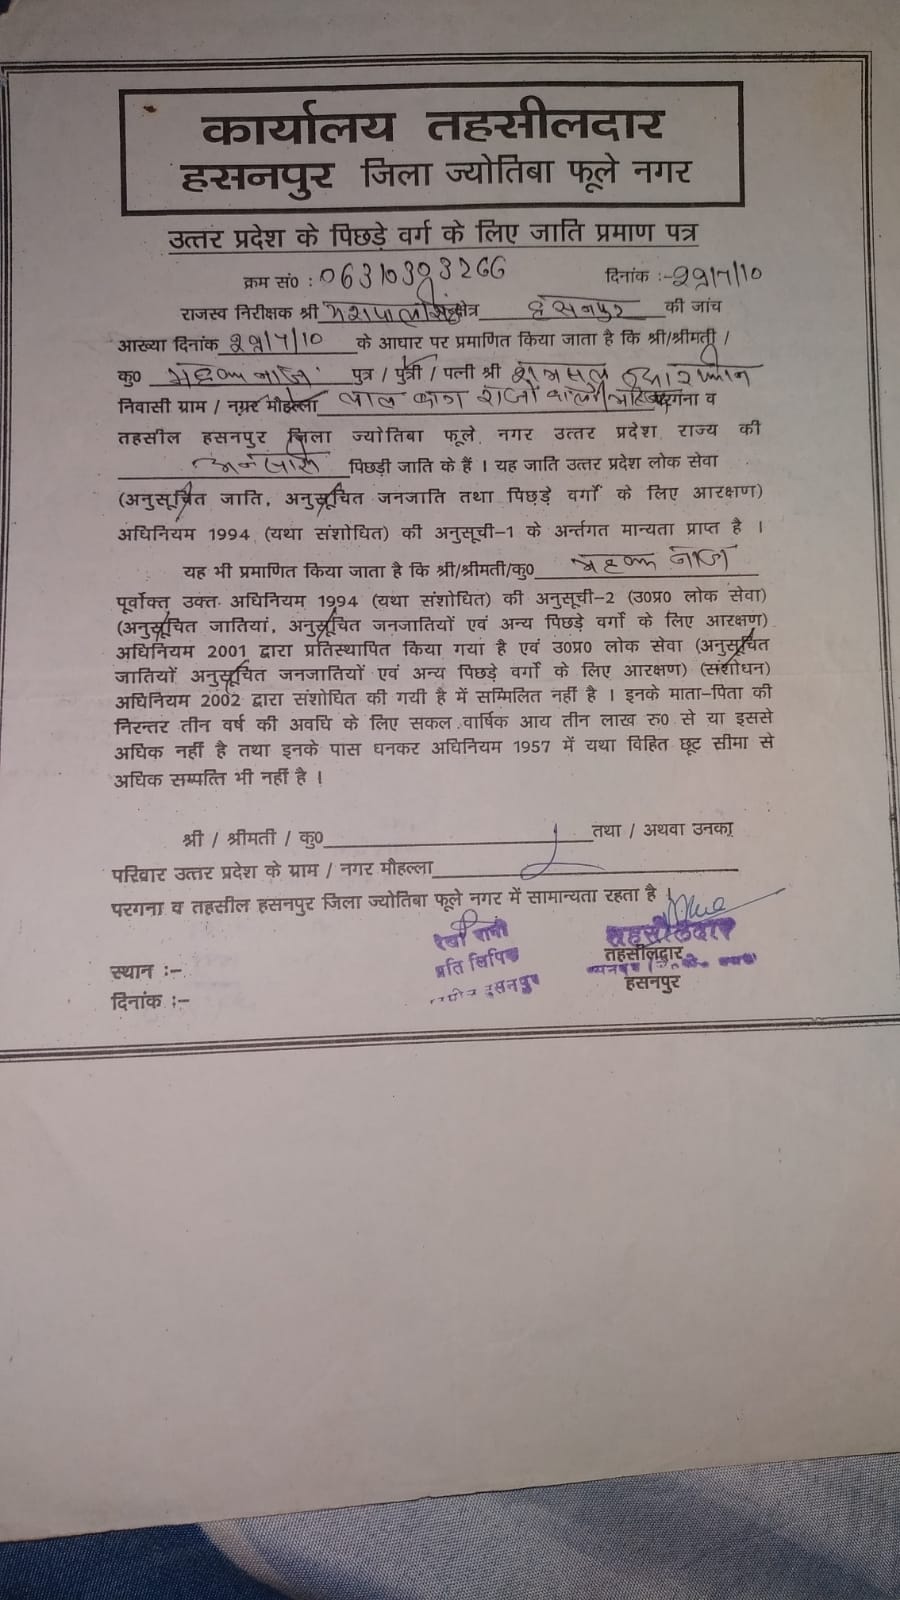 कार्यालय तहसीलदार
हसनपुर जिला ज्योतिबा फूले नगर
उत्तर प्रदेश के पिछड़े वर्ग के लिए जाति प्रमाण पत्र
क्रम सं० : दिनांक :-
राजस्व निरीक्षक श्री यशपाल सिंह क्षेत्र हसनपुर की जांच
आख्या दिनांक के आधार पर प्रमाणित किया जाता है कि श्री/श्रीमती /
कु० महक नाज पुत्र / पुत्री / पत्नी श्री
निवासी ग्राम / नगर मौहल्ला लाल बाग परगना व
तहसील हसनपुर जिला ज्योतिबा फूले नगर उत्तर प्रदेश राज्य की
अन्सारी पिछड़ी जाति के हैं । यह जाति उत्तर प्रदेश लोक सेवा
(अनुसूचित जाति, अनुसूचित जनजाति तथा पिछड़े वर्गों के लिए आरक्षण)
अधिनियम 1994 (यथा संशोधित) की अनुसूची-1 के अर्न्तगत मान्यता प्राप्त है ।
यह भी प्रमाणित किया जाता है कि श्री/श्रीमती/कु० महक नाज
पूर्वोक्त उक्त अधिनियम 1994 (यथा संशोधित) की अनुसूची-2 (उ०प्र० लोक सेवा)
(अनुसूचित जातियां, अनुसूचित जनजातियों एवं अन्य पिछड़े वर्गो के लिए आरक्षण)
अधिनियम 2001 द्वारा प्रतिस्थापित किया गया है एवं उ०प्र० लोक सेवा (अनुसूचित
जातियों अनुसूचित जनजातियों एवं अन्य पिछड़े वर्गो के लिए आरक्षण) (संशोधन)
अधिनियम 2002 द्वारा संशोधित की गयी है में सम्मिलित नहीं है । इनके माता-पिता की
निरन्तर तीन वर्ष की अवधि के लिए सकल वार्षिक आय तीन लाख रु० से या इससे
अधिक नहीं है तथा इनके पास धनकर अधिनियम 1957 में यथा विहित छूट सीमा से
अधिक सम्पत्ति भी नहीं है ।
श्री / श्रीमती / कु० तथा / अथवा उनका
परिवार उत्तर प्रदेश के ग्राम / नगर मौहल्ला
परगना व तहसील हसनपुर जिला ज्योतिबा फूले नगर में सामान्यता रहता है ।
रेखा रानी तहसीलदार
प्रति लिपिक तहसीलदार
स्थान :- हसनपुर हसनपुर
दिनांक :-